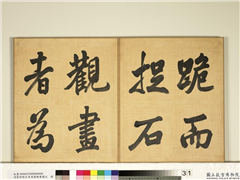 跪而
捉石
觀畫
者為
31
國立故宮博物院